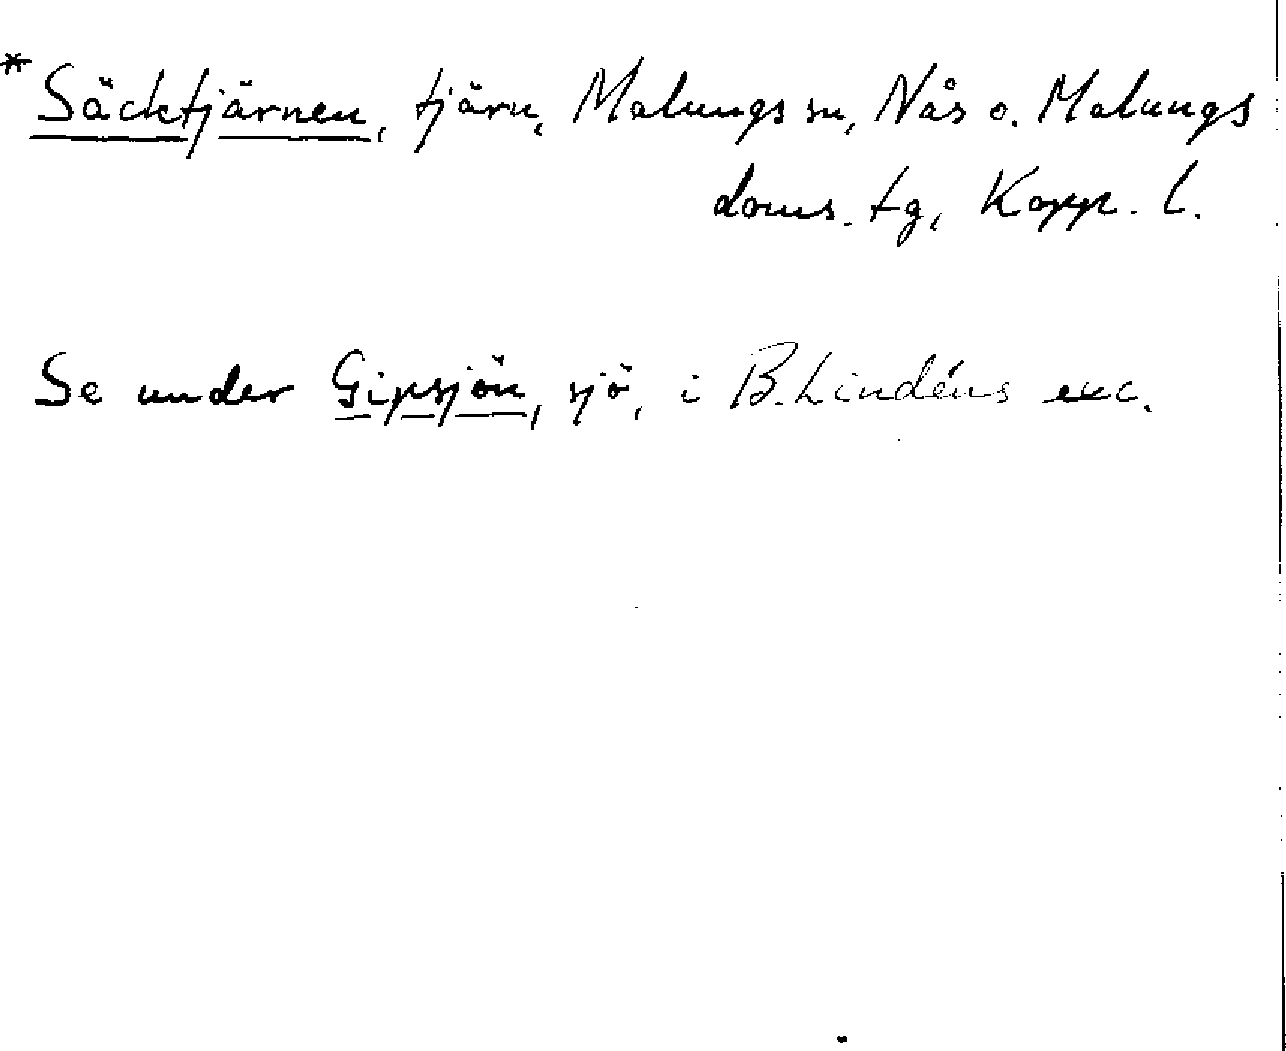 * Säcktjärnen, tjärn, Malungs sn, Nås o. Malungs
doms. tg, Kopp. l.
Se under Gipsjön, sjö, i B. Lindéns exc.